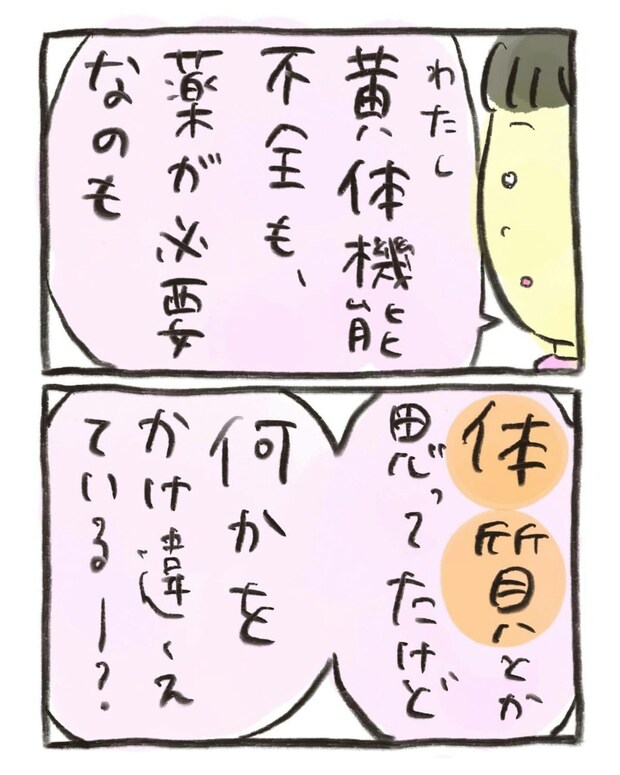 わたし
黄体機能
不全も、
薬が必要
なのも
体質とか
思ってたけど
何かを
かけ違え
ているー?